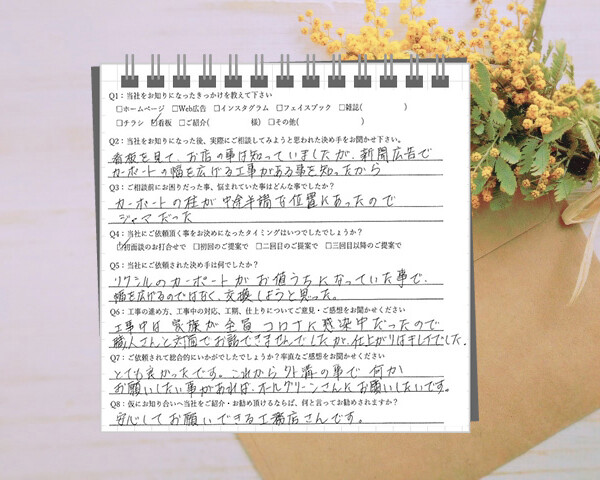 Q1：当社をお知りになったきっかけを教えて下さい
□ホームページ □Web広告 □インスタグラム □フェイスブック □雑誌( )
□チラシ ☑看板 □ご紹介( 様) □その他( )
Q2：当社をお知りになった後、実際にご相談してみようと思われた決め手をお聞かせ下さい。
看板を見て、お店の事は知っていましたが、新聞広告で
カーポートの幅を広げる工事がある事を知ったから
Q3：ご相談前にお困りだった事、悩まれていた事はどんな事でしたか？
カーポートの柱が中途半端な位置にあったので
ジャマだった
Q4：当社にご依頼頂く事をお決めになったタイミングはいつでしたでしょうか？
☑初面談のお打合せで □初回のご提案で □二回目のご提案で □三回目以降のご提案で
Q5：当社にご依頼された決め手は何でしたか？
リクシルのカーポートがお値うちになっていた事で、
幅を広げるのではなく、交換しようと思った。
Q6：工事の進め方、工事中の対応、工期、仕上りについてご意見・ご感想をお聞かせください
工事中は家族が全員コロナに感染中だったので
職人さんと対面でお話できませんでしたが、仕上がりはキレイでした。
Q7：ご依頼されて総合的にいかがでしたでしょうか？率直なご感想をお聞かせください
とても良かったです。これから外溝の事で何か
お願いしたい事があれば、オールグリーンさんにお願いしたいです。
Q8：仮にお知り合いへ当社をご紹介・お勧め頂けるならば、何と言ってお勧めされますか？
安心してお願いできる工務店さんです。